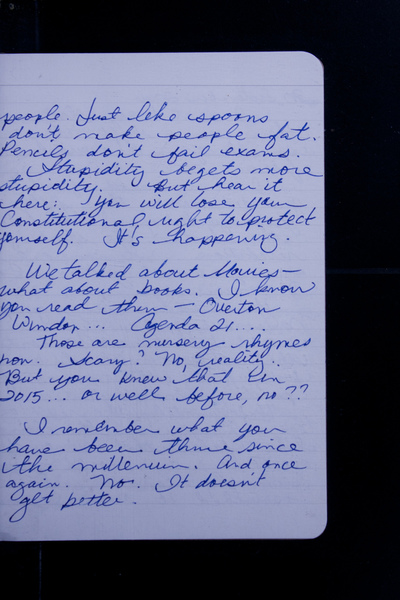 people. Just like spoons
don't make people fat.
Pencils don't fail exams.
Stupidity begets more
stupidity. But hear it
here: You will lose your
Constitutional right to protect
yourself. It's happening.
We talked about Movies—
what about books. I know
you read them — Overton
Window... Agenda 21....
Those are nursery rhymes
now. Scary? No, reality..
But you knew that in
2015... or well before, no??
I remember what you
have been thru since
the millenium. And once
again. No. It doesn't
get better.